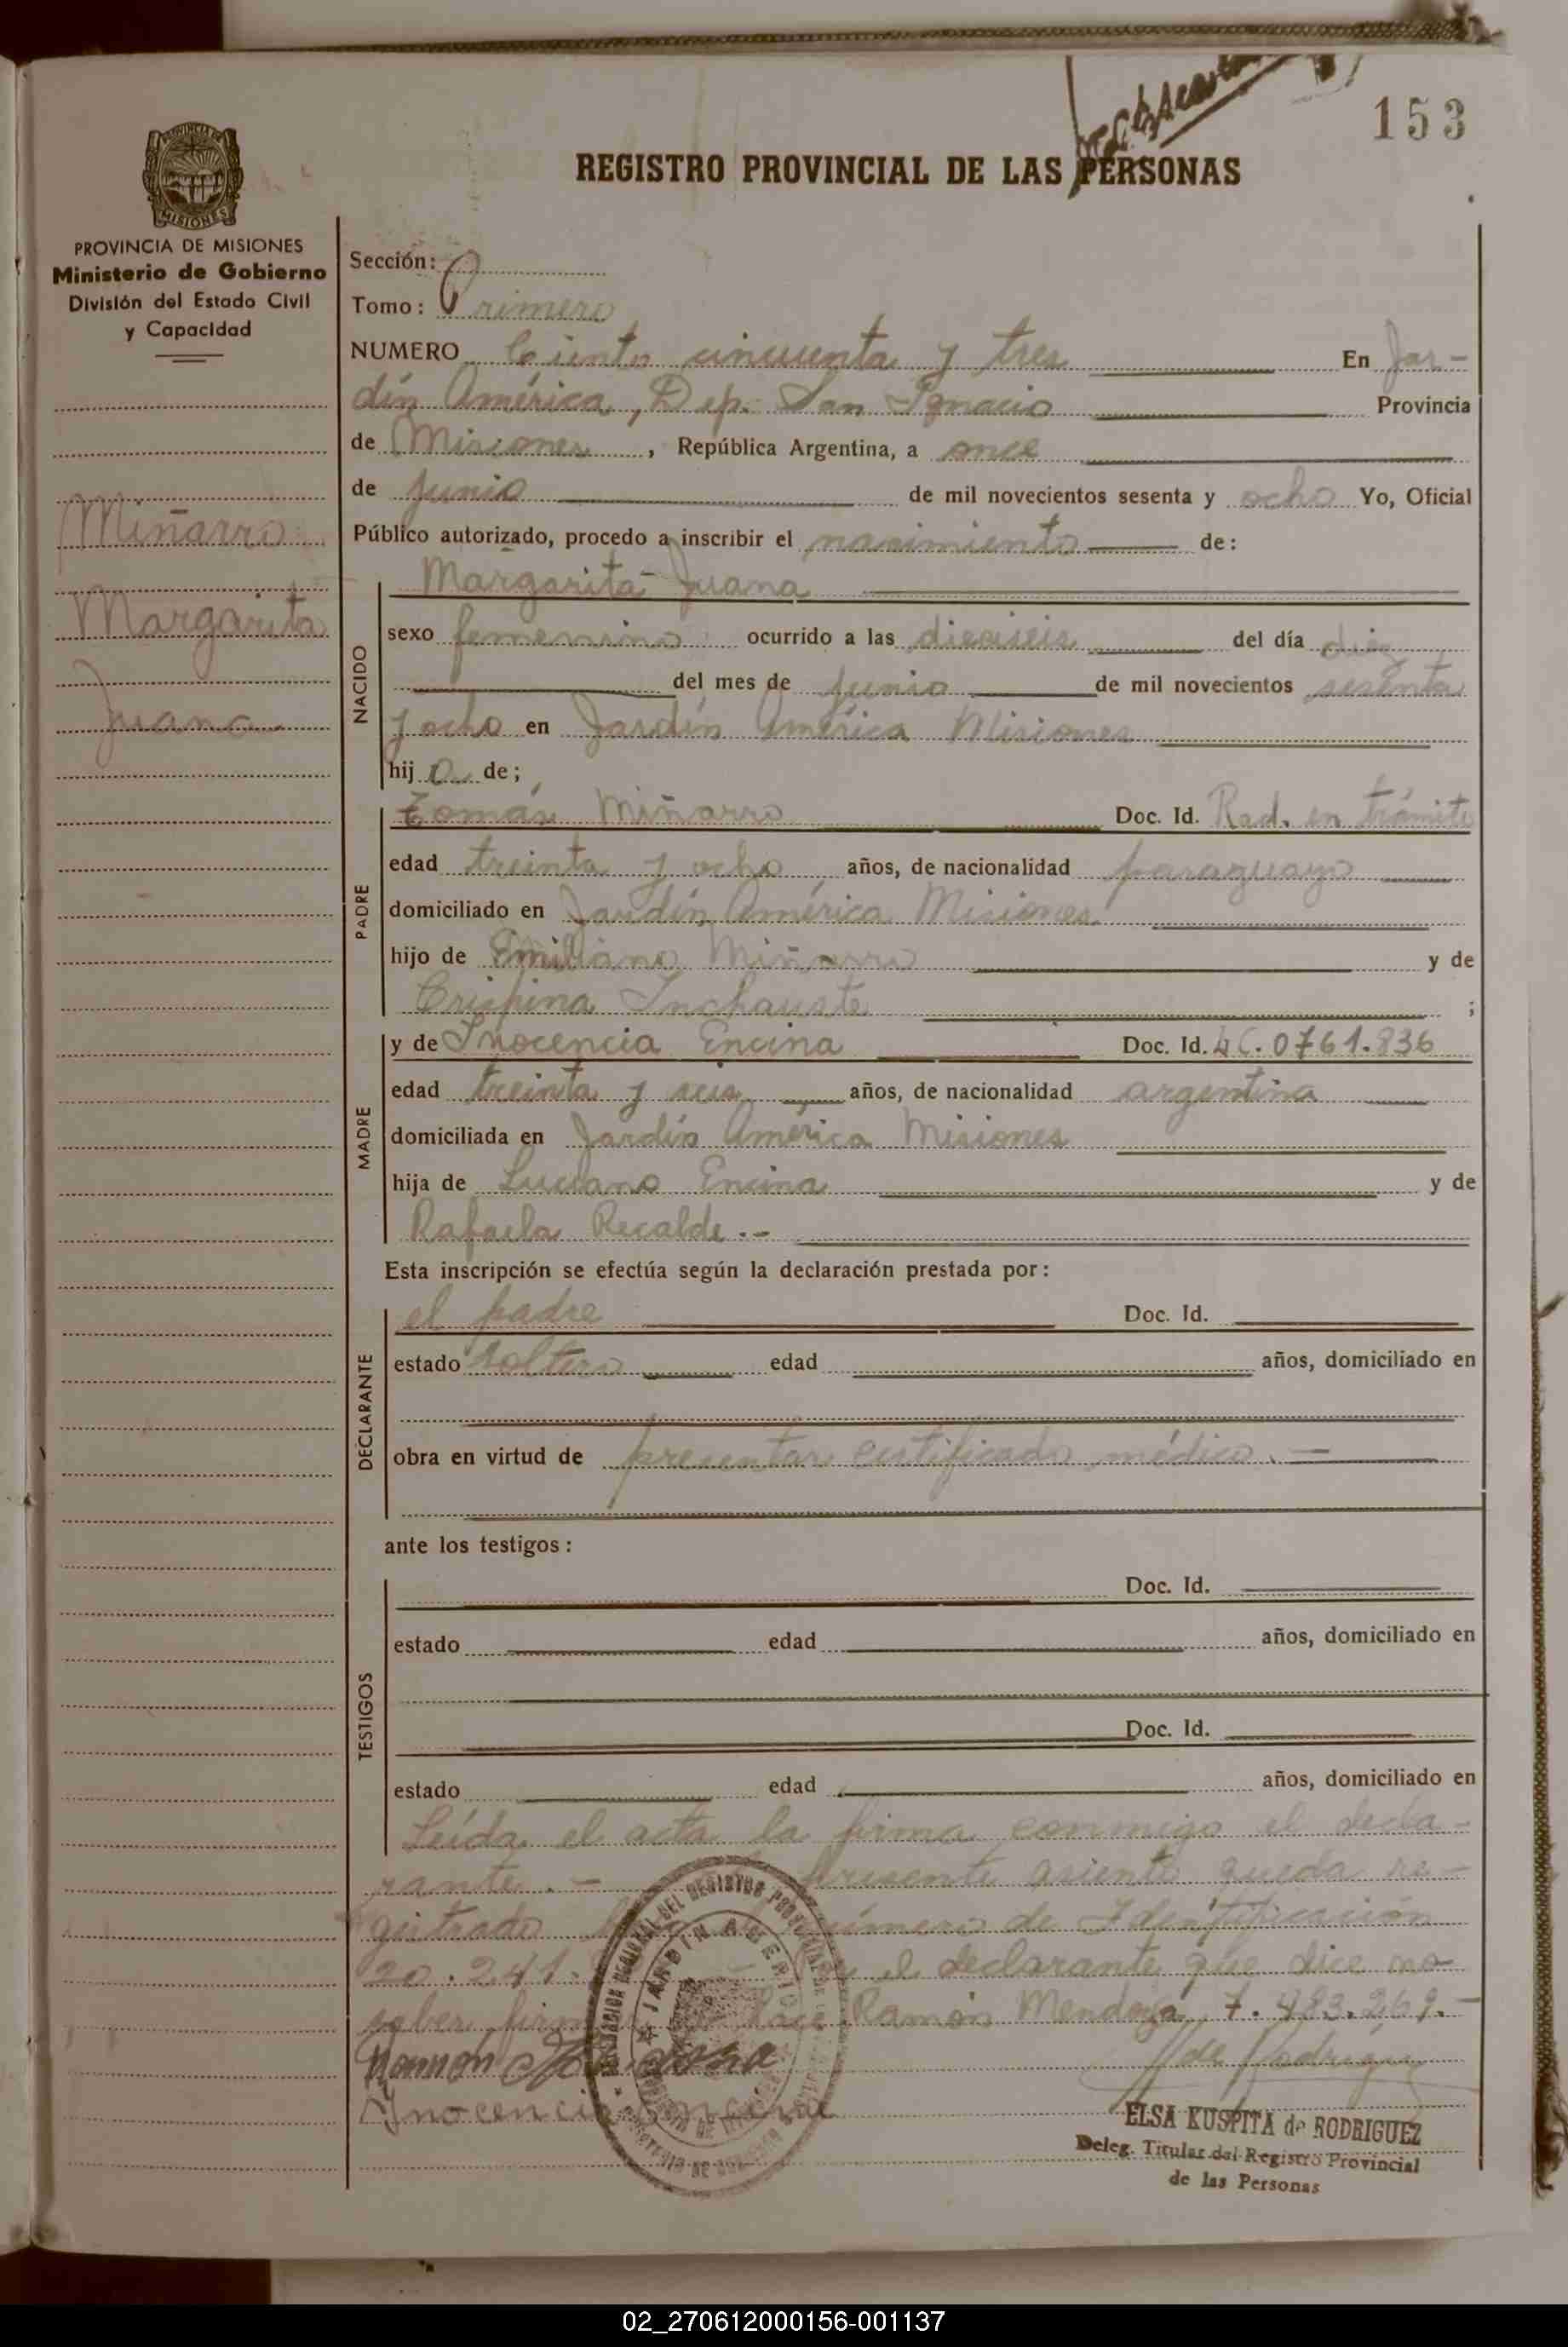 153
REGISTRO PROVINCIAL DE LAS PERSONAS
PROVINCIA DE
MISIONES
PROVINCIA DE MISIONES
Ministerio de Gobierno
División del Estado Civil
y Capacidad
Miñarro
Margarita
Juana
Sección:
Tomo: Primero
NUMERO Ciento cincuenta y tres En Jar-
dín América, Dep. San Ignacio Provincia
de Misiones, República Argentina, a once
de junio de mil novecientos sesenta y ocho Yo, Oficial
Público autorizado, procedo a inscribir el nacimiento de:
NACIDO
Margarita Juana
sexo femenino ocurrido a las dieciseis del día diez
del mes de junio de mil novecientos sesenta
y ocho en Jardín América Misiones
hij a de;
PADRE
Tomás Miñarro Doc. Id. Rad. en trámite
edad treinta y ocho años, de nacionalidad paraguayo
domiciliado en Jardín América Misiones
hijo de Emiliano Miñarro y de
Crispina Inchauste ;
MADRE
y de Inocencia Encina Doc. Id. LC. 0761.836
edad treinta y seis años, de nacionalidad argentina
domiciliada en Jardín América Misiones
hija de Luciano Encina y de
Rafaela Recalde.-
Esta inscripción se efectúa según la declaración prestada por:
DECLARANTE
el padre Doc. Id.
estado soltero edad años, domiciliado en
obra en virtud de presentar certificado médico.-
ante los testigos:
TESTIGOS
Doc. Id.
estado edad años, domiciliado en
Doc. Id.
estado edad años, domiciliado en
Leída el acta la firma conmigo el decla-
rante.- presente asiento queda re-
gistrado número de Identificación
20.241. el declarante que dice no
saber hace Ramón Mendoza 7.483.269.-
Ramón
Inocencia Encina
JARDIN AMERICA
ELSA KUSPITA de RODRIGUEZ
Deleg. Titular del Registro Provincial
de las Personas
02_270612000156-001137